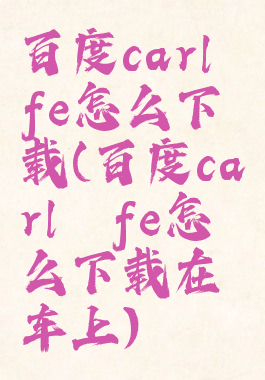 百度carl
fe怎么下
载(百度ca
rl fe怎
么下载在
车上)